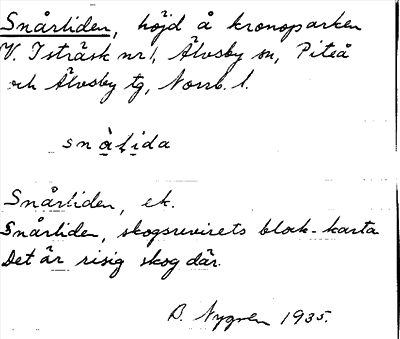 Snårliden, höjd å kronoparken
V. Isträsk nr 1, Älvsby sn, Piteå
och Älvsby tg, Norrb. l.
snålida
Snårliden, ek.
Snårliden, skogsrevirets block-karta
Det är risig skog där.
B. Nygren 1935.